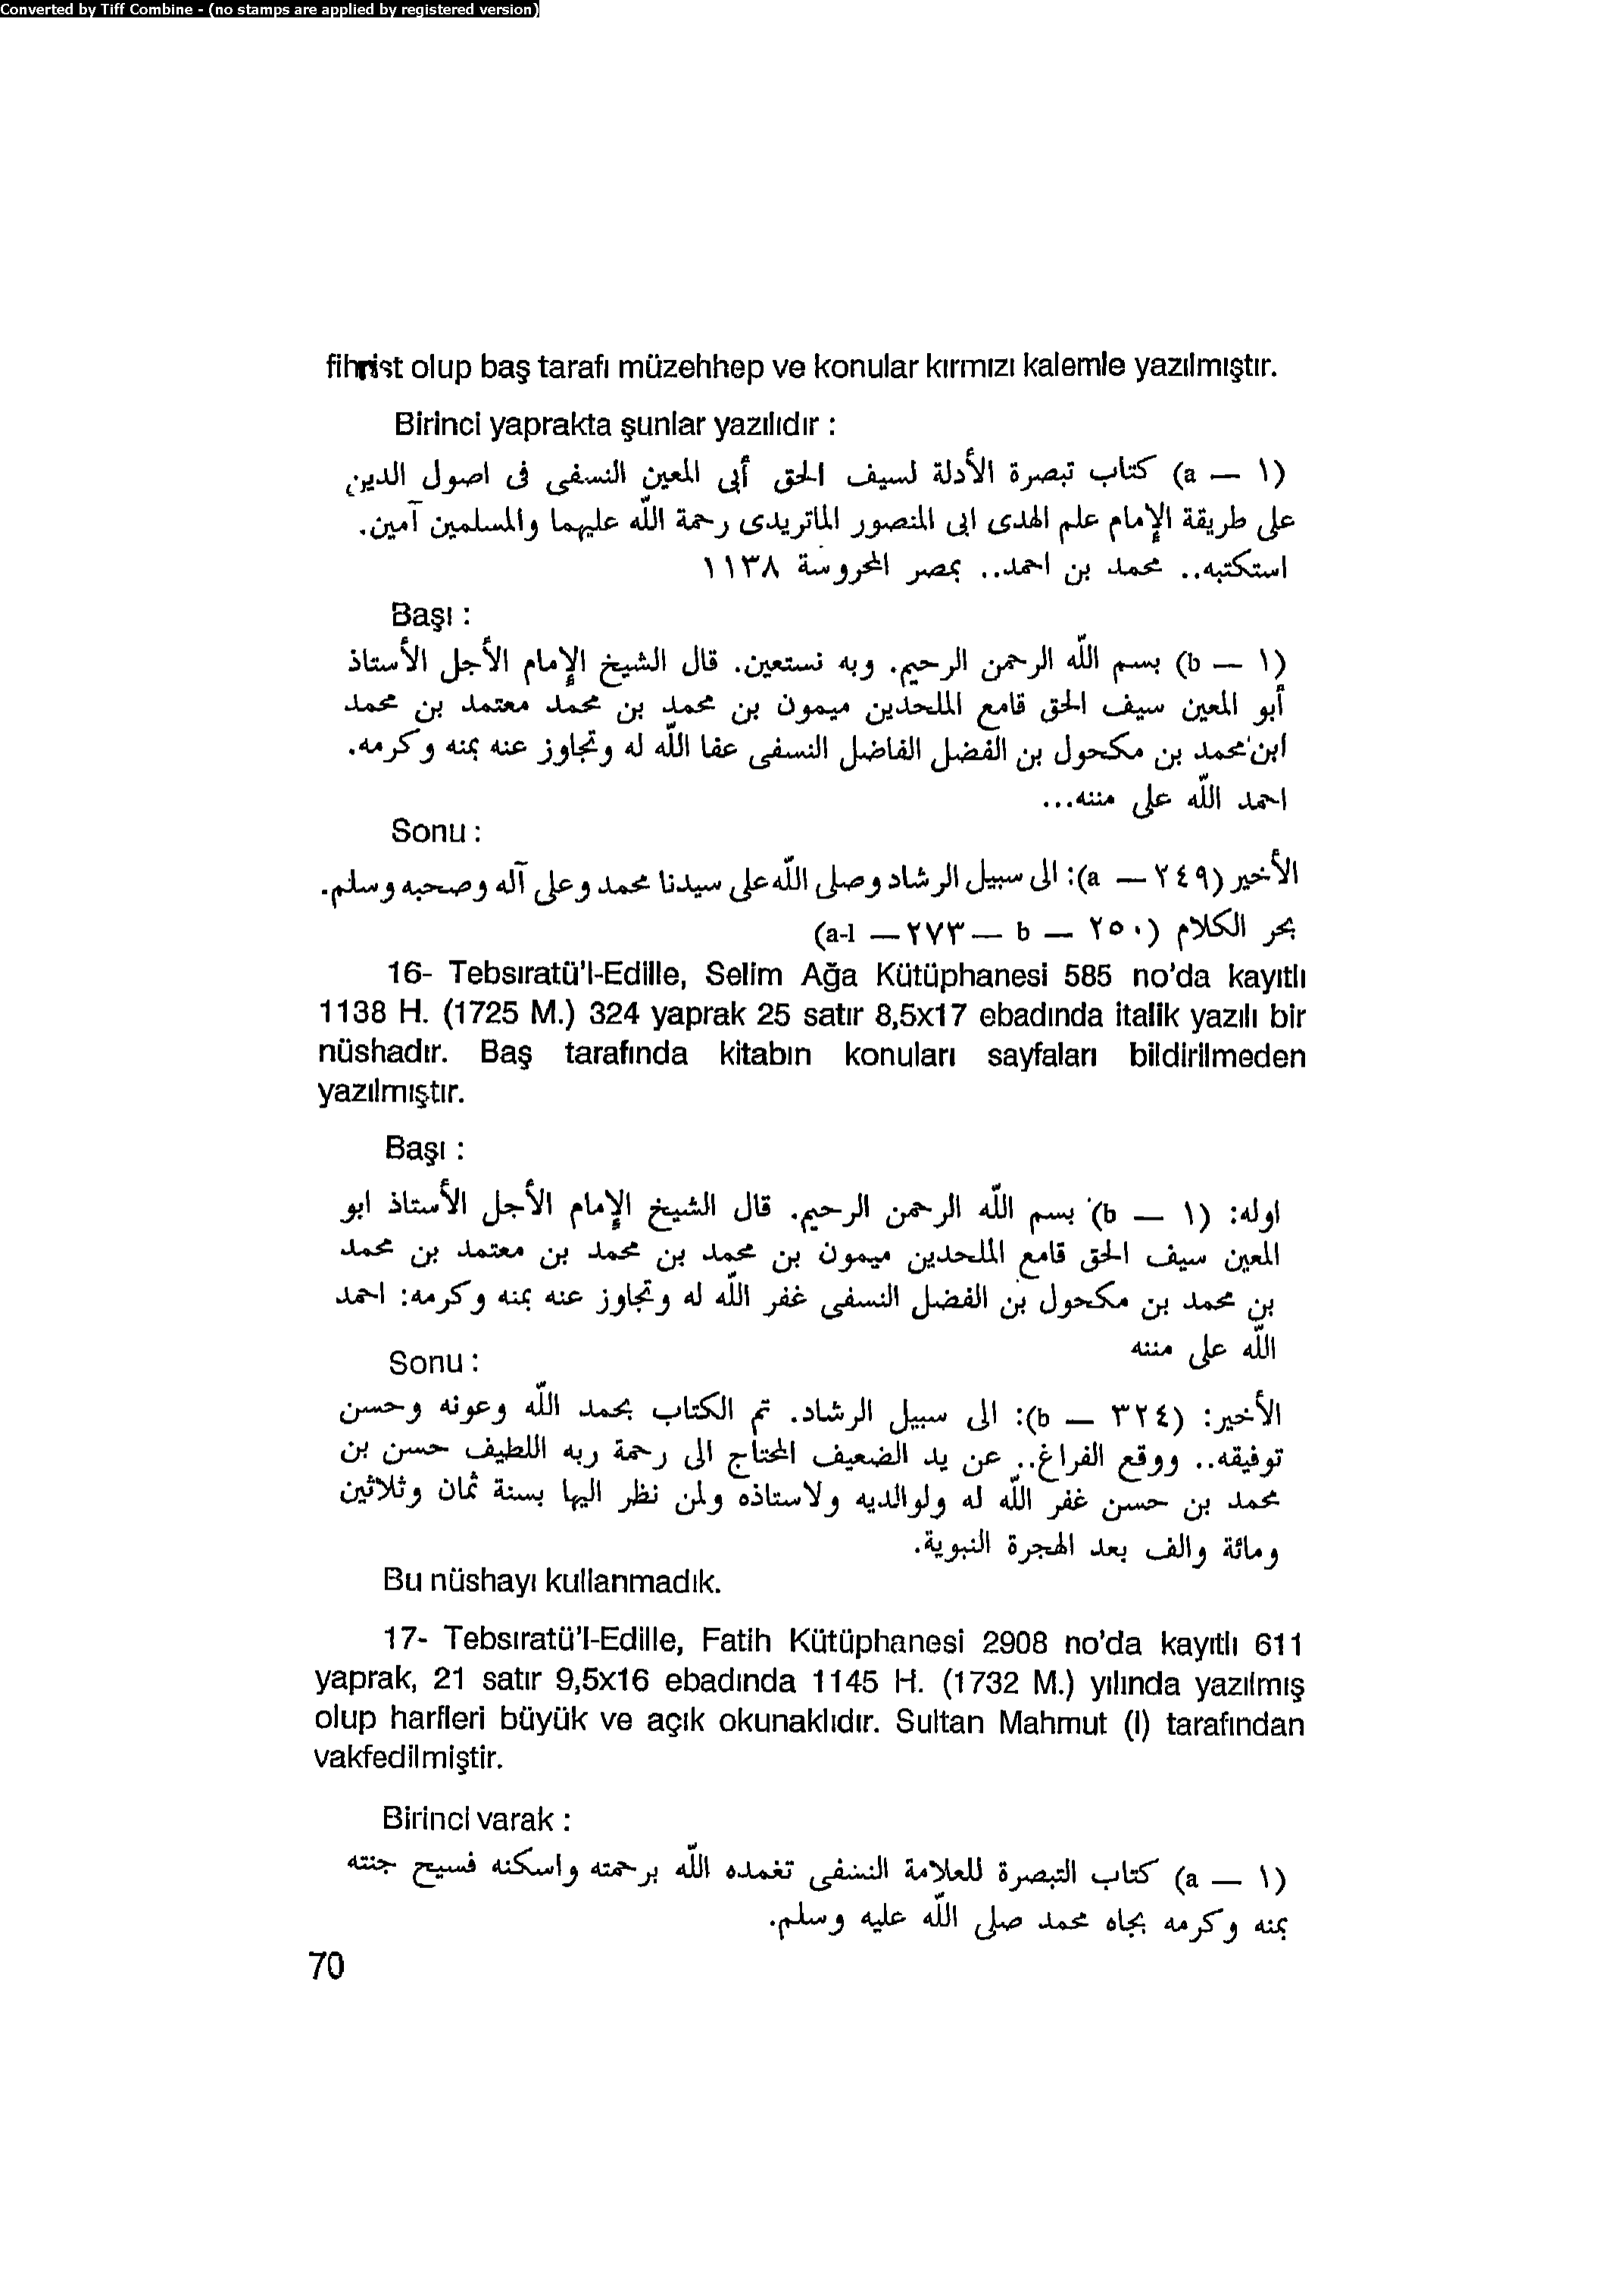 Converted by Tiff Combine - (no stamps are applied by registered version)
fihrist olup baş tarafı müzehhep ve konular kırmızı kalemle yazılmıştır.
Birinci yaprakta şunlar yazılıdır :
(١ — a) كتاب تبصرة الأدلة لسيف الحق أبى المعين النسفى فى اصول الدين
على طريقة الإمام علم الهدى ابى المنصور الماتريدى رحمة الله عليهما والمسلمين آمين.
استكتبه.. محمد بن احمد.. بمصر المحروسة ١١٣٨
Başı :
(١ — b) بسم الله الرحمن الرحيم. وبه نستعين. قال الشيخ الإمام الأجل الأستاذ
أبو المعين سيف الحق قامع الملحدين ميمون بن محمد بن محمد معتمد بن محمد
ابن محمد بن مكحول بن الفضل الفاضل النسفى عفا الله له وتجاوز عنه بمنه وكرمه.
احمد الله على مننه...
Sonu :
الأخير (٢٤٩ — a): الى سبيل الرشاد وصلى الله على سيدنا محمد وعلى آله وصحبه وسلم.
بحر الكلام (٢٥٠ — b —٢٧٣— a-l)
16- Tebsıratü'l-Edille, Selim Ağa Kütüphanesi 585 no'da kayıtlı
1138 H. (1725 M.) 324 yaprak 25 satır 8,5x17 ebadında italik yazılı bir
nüshadır. Baş tarafında kitabın konuları sayfaları bildirilmeden
yazılmıştır.
Başı :
اوله: (١ — b) بسم الله الرحمن الرحيم. قال الشيخ الإمام الأجل الأستاذ ابو
المعين سيف الحق قامع الملحدين ميمون بن محمد بن محمد بن معتمد بن محمد
بن محمد بن مكحول بن الفضل النسفى غفر الله له وتجاوز عنه بمنه وكرمه: احمد
الله على مننه
Sonu :
الأخير: (٣٢٤ — b): الى سبيل الرشاد. تم الكتاب بحمد الله وعونه وحسن
توفيقه.. ووقع الفراغ.. عن يد الضعيف المحتاج الى رحمة ربه اللطيف حسن بن
محمد بن حسن غفر الله له ولوالديه ولاستاذه ولمن نظر اليها بسنة ثمان وثلاثين
ومائة والف بعد الهجرة النبوية.
Bu nüshayı kullanmadık.
17- Tebsıratü'l-Edille, Fatih Kütüphanesi 2908 no'da kayıtlı 611
yaprak, 21 satır 9,5x16 ebadında 1145 H. (1732 M.) yılında yazılmış
olup harfleri büyük ve açık okunaklıdır. Sultan Mahmut (I) tarafından
vakfedilmiştir.
Birinci varak :
(١ — a) كتاب التبصرة للعلامة النسفى تغمده الله برحمته واسكنه فسيح جنته
بمنه وكرمه بجاه محمد صلى الله عليه وسلم.
70